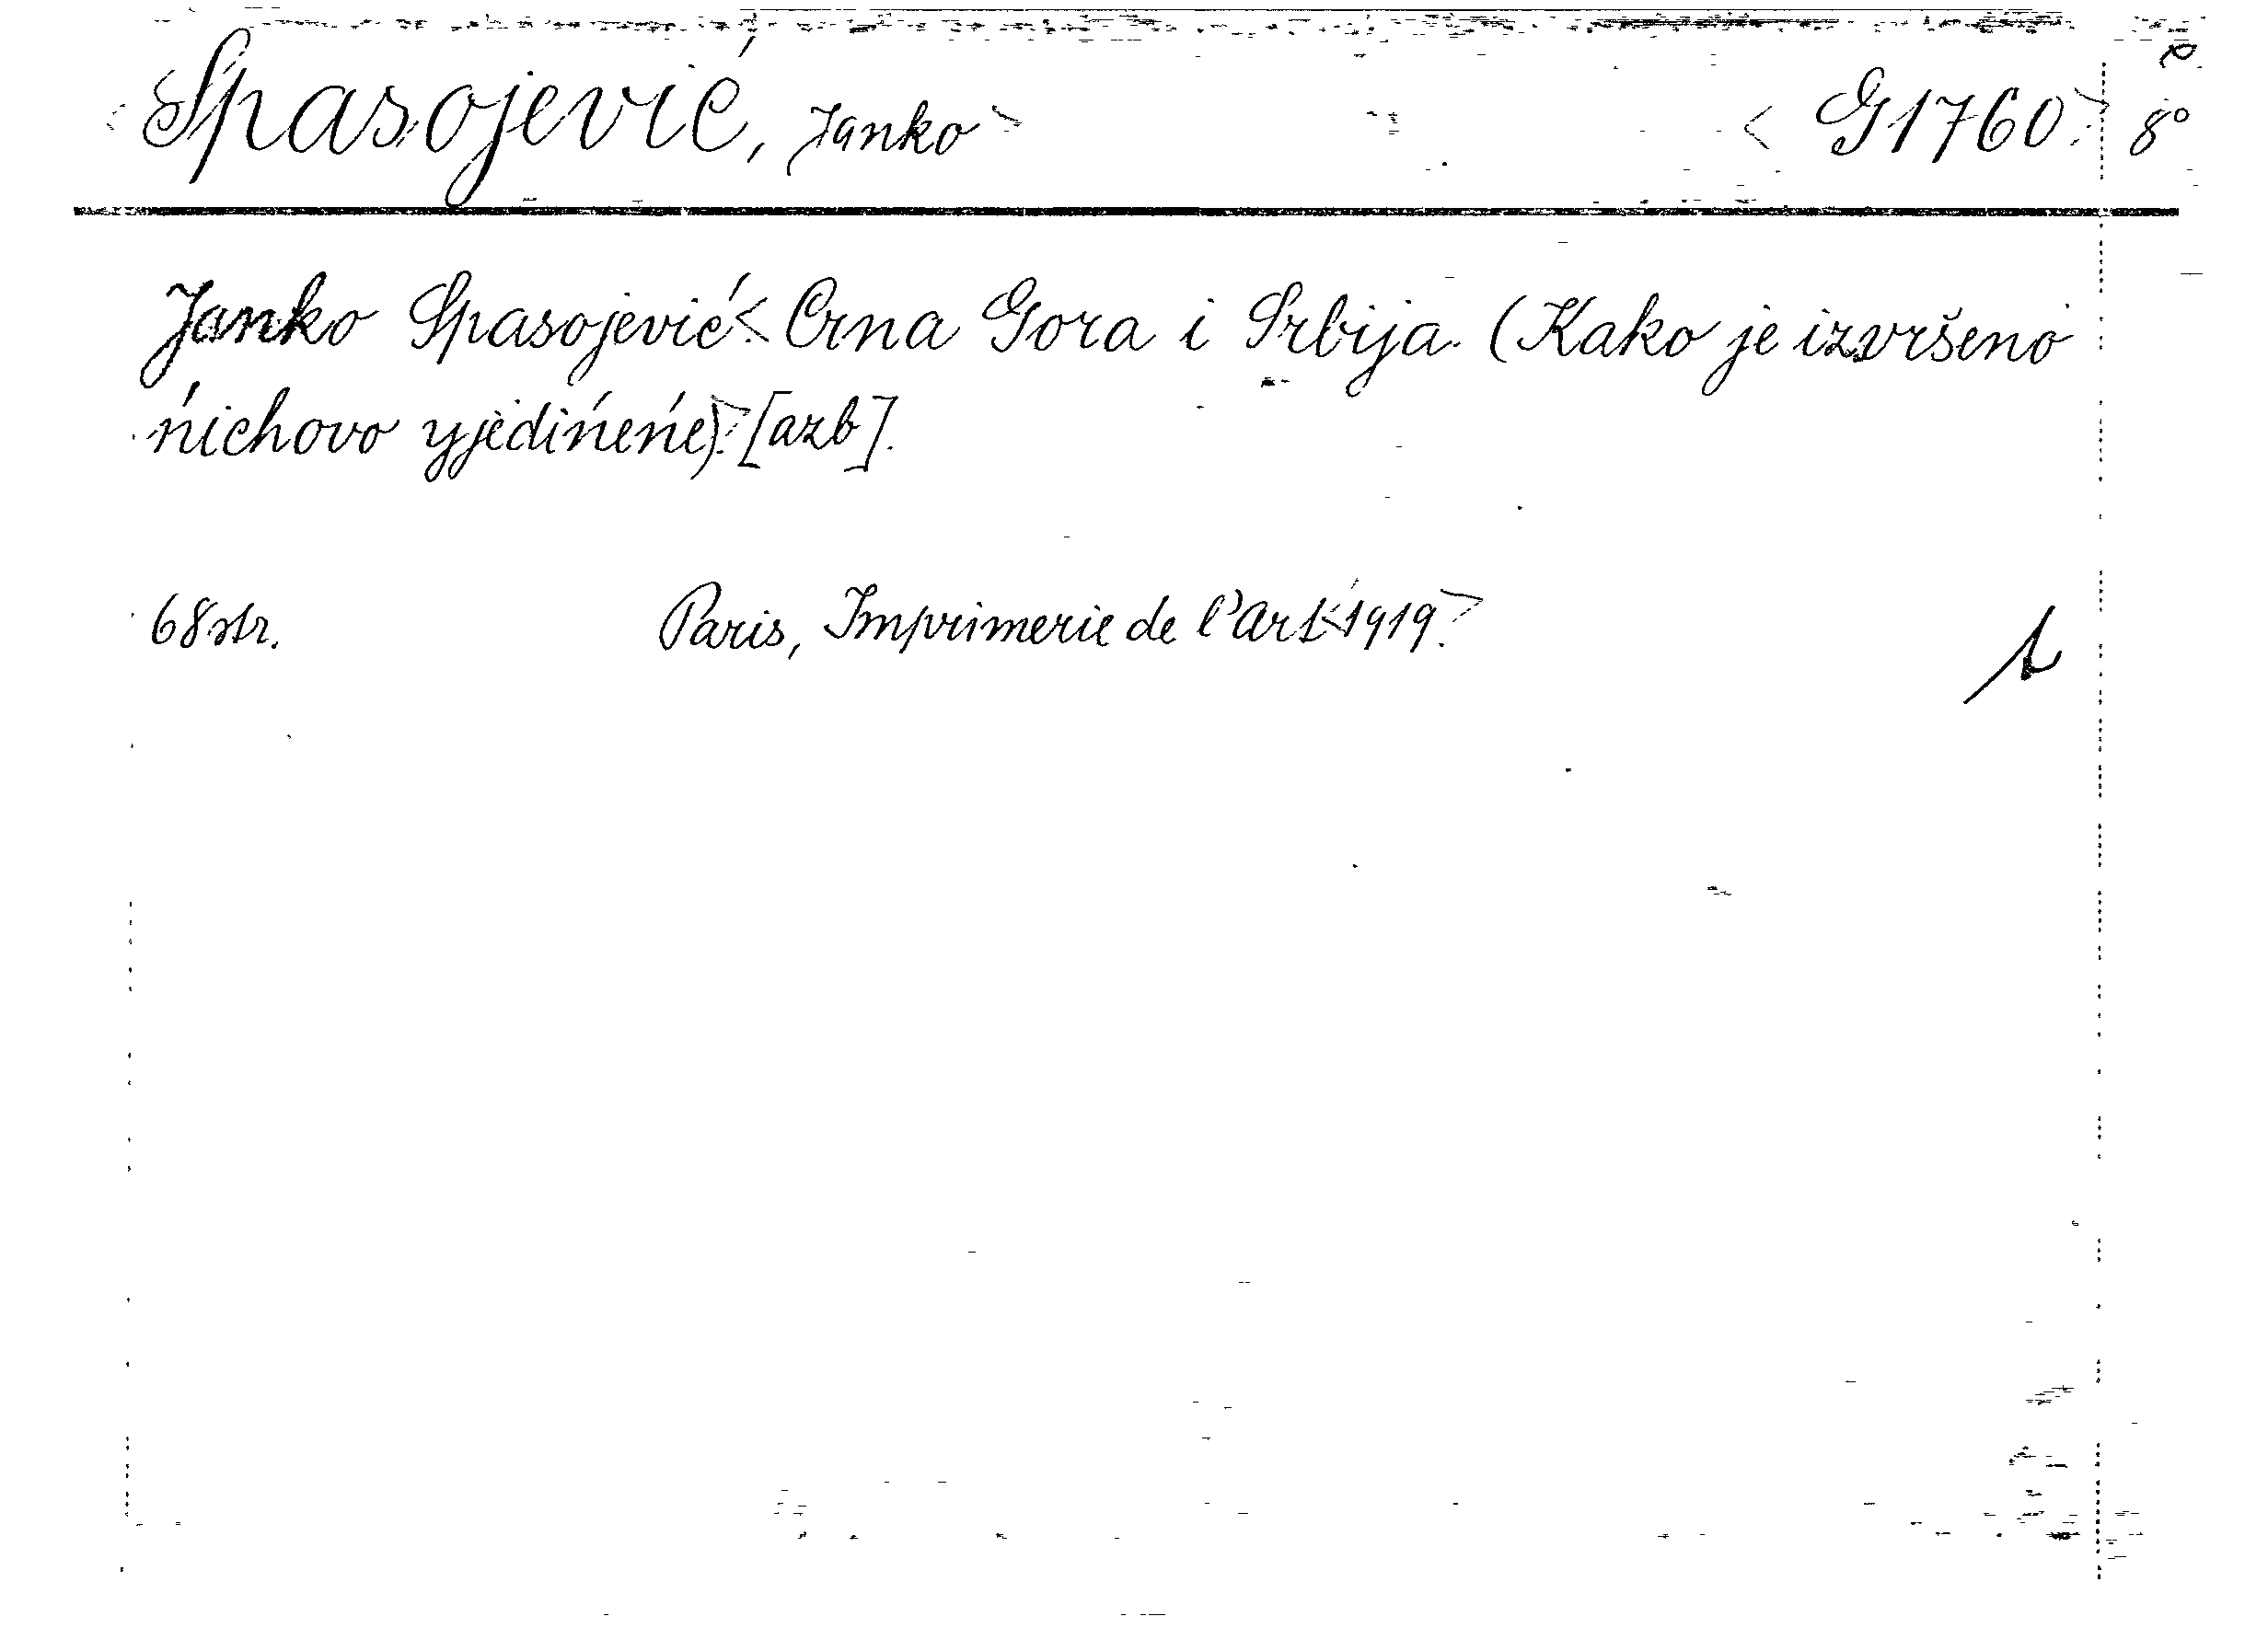 Spasojević, Janko < G1760> 8°
Janko Spasojević <Crna Gora i Srbija. (Kako je izvršeno
ńichovo yjedińeńe)> [azb].
68 str. Paris, Imprimerie de l'Art <1919>